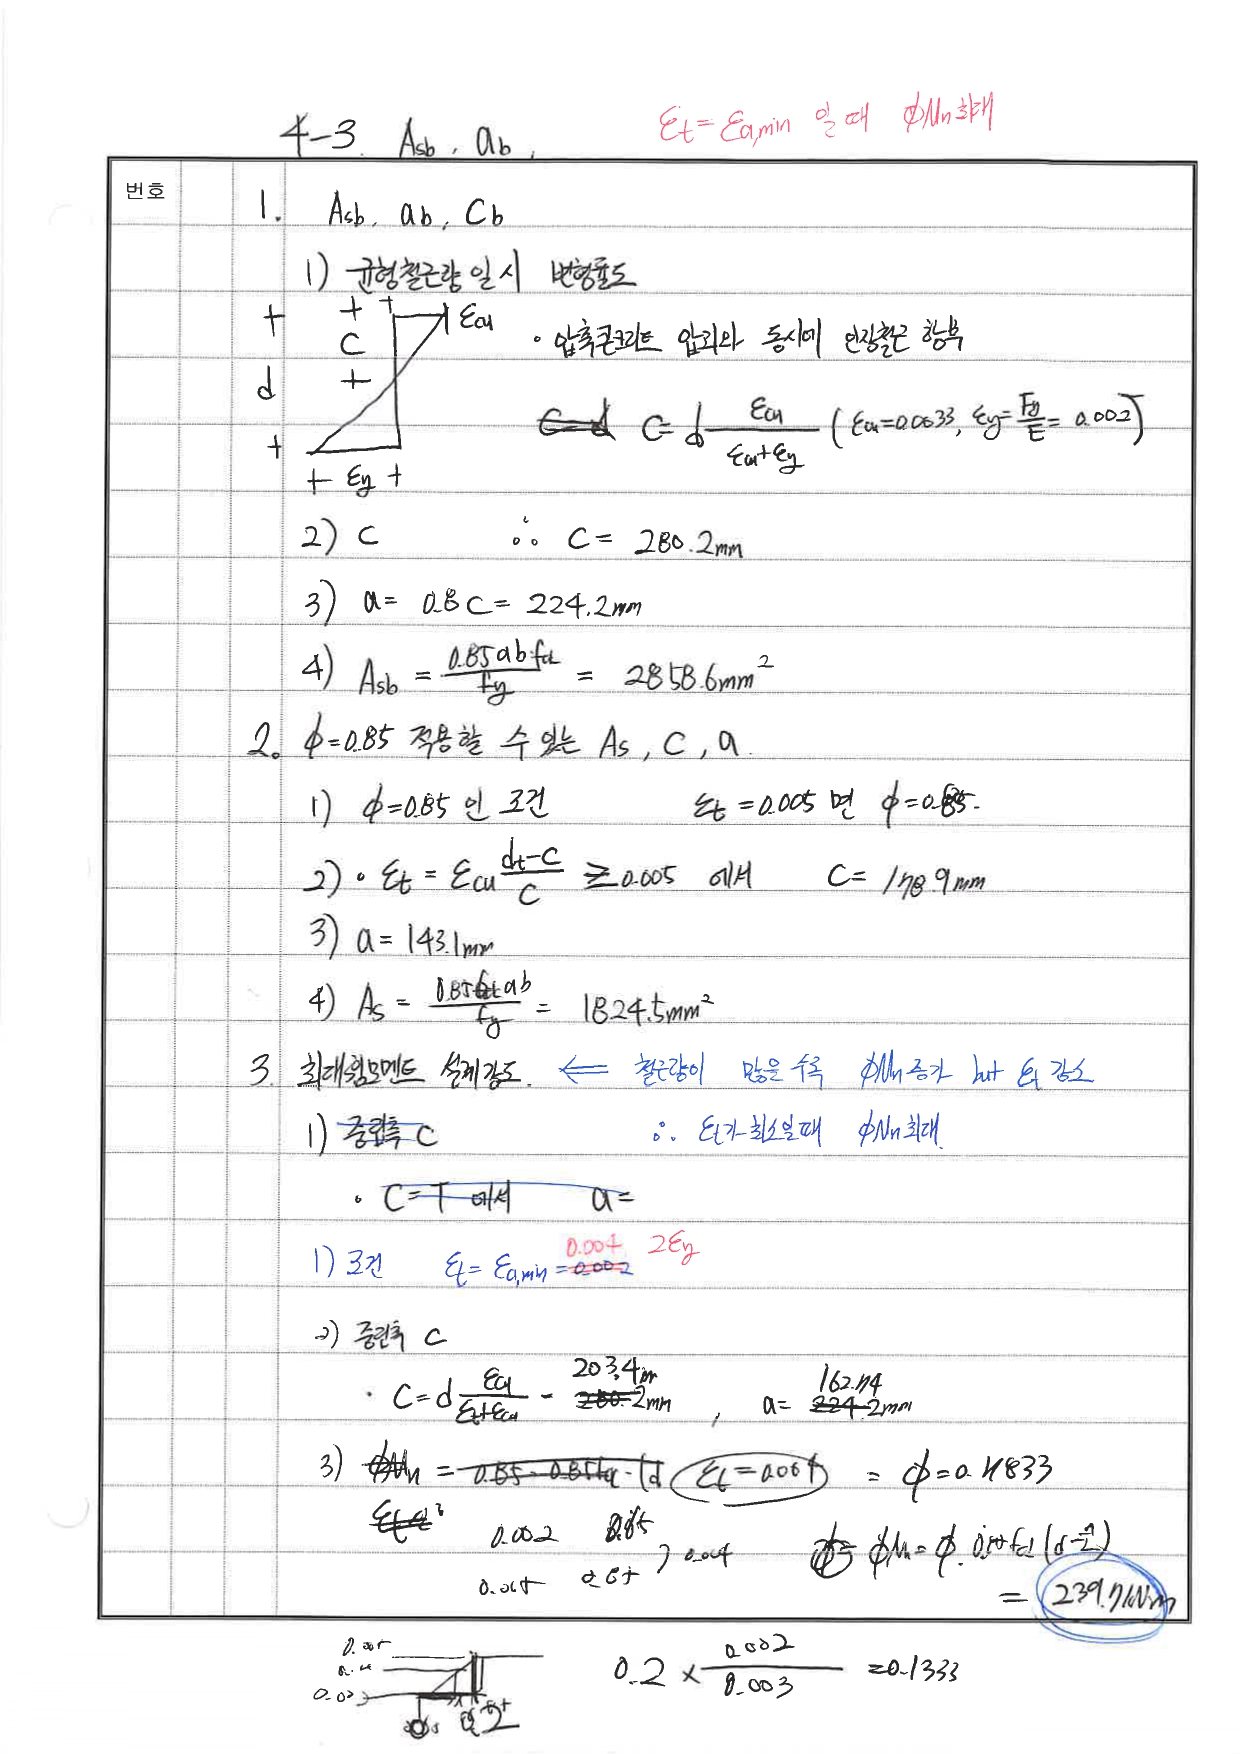 4-3. Asb, ab,
εt = εa,min 일 때 ϕMn 최대
번호
1. Asb, ab, Cb
1) 균형철근량 일 시 변형률도
εcu
C
d
εy
• 압축콘크리트 압괴와 동시에 인장철근 항복
C = d εcu / (εcu + εy) (εcu = 0.0033, εy = Fy/E = 0.002)
2) C ∴ C = 280.2mm
3) a = 0.8C = 224.2mm
4) Asb = 0.85ab fck / fy = 2858.6mm²
2. ϕ=0.85 적용할 수 있는 As, C, a.
1) ϕ=0.85 인 조건 εt = 0.005 면 ϕ=0.85.
2) • εt = εcu (dt-C)/C ≥ 0.005 에서 C = 178.9mm
3) a = 143.1mm
4) As = 0.85fck ab / fy = 1824.5mm²
3. 최대휨모멘트 설계강도. ⇐ 철근량이 많을수록 ϕMn 증가 but εt 감소
1) 중립축 C ∴ εt가 최소일때 ϕMn 최대.
• C=T 에서 a=
1) 조건 εt = εa,min = 0.002 0.004 2εy
2) 중립축 C
• C = d εcu / (εt+εcu) = 280.2mm 203.4, a = 224.2mm 162.74
3) ϕMn = 0.85 · 0.85fck · (d εt = 0.004 = ϕ=0.7833
0.002 0.65
0.005 0.85 ) 0.004
ϕMn = ϕ · (d-a/2)
= 239.7kN·m
0.005
0.002
0.2 × 0.002 / 0.003 = 0.1333